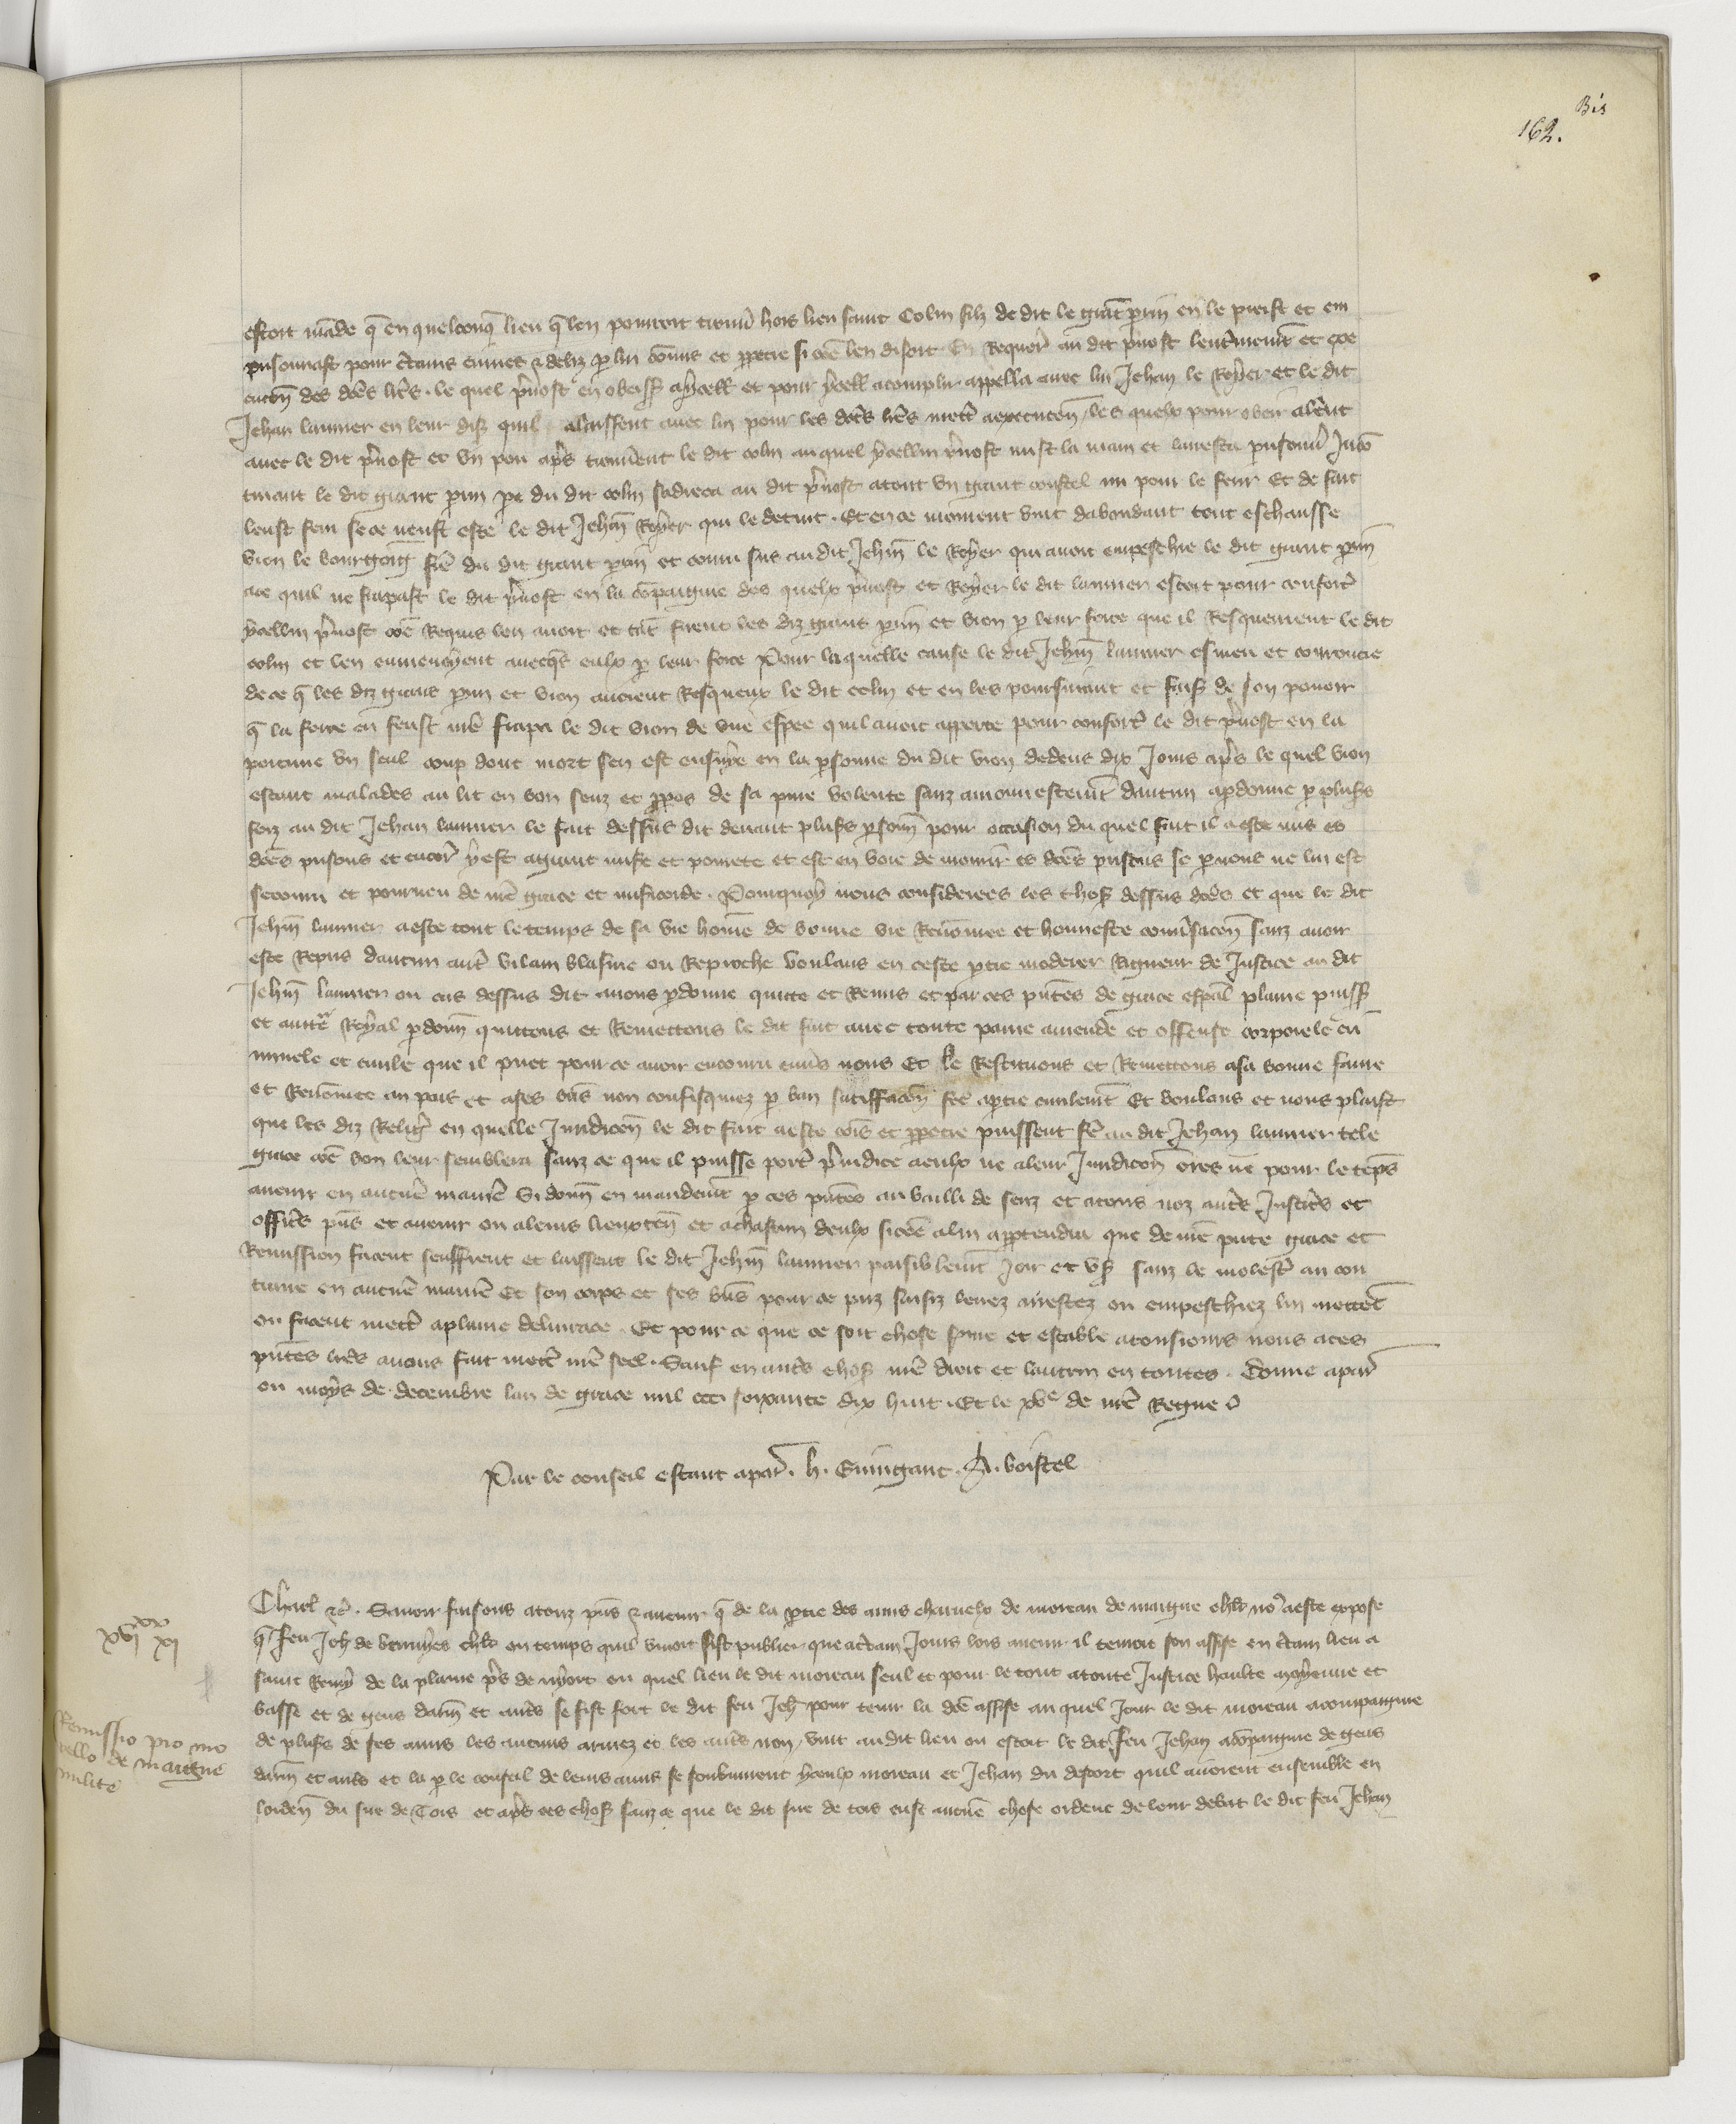 Bis
162.
estoit mãde q̃ en quelconq̃ lieu q̃ len pourroit trouũ hors lieu saint Colin filz de dit le grãt perrin en le preist et em
prisonnast pour c̃tains crimes & deliz p lui cõmis et ppetre si cõe len disoit En requer̃ au dit p̃uost lent̃inem̃t et exe
cucõn des dc̃es lr̃es . le quel p̃uost en obeiss̃ a ycelles et pour ycelles acomplir appella auec lui Jehan le Royer et le dit
Jehan lanner en leur dis̃ quil alaissent auec lui pour les dc̃es lr̃es mett̃ a execucõn / les quelx pour obeir alerẽt
auec le dit p̃uost et un pou apr̃s trouuerent le dit colin au quel ycellui p̃uost mist la main et larresta prisonñ
le dit grant perrin pere du dit colin sadreca au dit p̃uost atout un grant coustel nu pour le ferir Et de fait
leust feru se ce neust este le dit Jehñ Royer qui le detint . Et en ce moment vint dabondant tout eschauffe
vion le bourgoing frẽ du dit grant perrin et couru sus au dit Jehñ le Royer qui auoit empeschie le dit grant prin
a ce quil ne frapast le dit p̃uost en la cõpaignie des quelx p̃uost et Royer le dit lanner estoit pour confort̃
ycellui p̃uost cõe requis len auoit et tãt firent les diz grant prin et vion p leur force que il resqueurent le dit
colin et len enmenoyent auecq̃s eulx p leur force Pour la quelle cause le dit Jehñ lanner esmeu et courroucie
de ce q̃ les diz grant prin et vion auoient resqueux le dit colin et en les poursuiant et fais̃ de son pouoir
q̃ la force en feust nr̃e frapa le dit vion de une espee quil auoit apporte pour confort̃ le dit p̃uost en la
poitrine un seul coup dont mort sen est ensuye en la psonne du dit vion dedens dix jours apr̃s le quel vion
estant malades au lit en bon senz et ppos de sa pure volente sanz amonnestem̃t daucun a pdonne p plus̃rs
foiz au dit Jehan lanner le fait dessus dit deuant plus̃rs psoñn pour occasion du quel fait il a este mis es
dc̃es prisons et encor̃ y est a grant mis̃e et pourete et est en voie de mourir es dc̃es prisons se p nous ne lui est
secouru et pourueu de nr̃e grace et mis̃icorde . Pourquoy nous considerees les chos̃ dessus dc̃es et que le dit
Jehñ lanner a este tout le temps de sa vie hom̃e de bonne vie renõmee et honneste conũsacõn sanz auoir
este repris daucun aut̃ vilain blasme ou reproche voulans en ceste ptie moderer rigueur de justice au dit
Jehñ lanner ou cas dessus dit auons pdonne quitte et remis et par ces p̃ntes de grace esp̃al plaine puiss̃
et auct̃e Royal pdoñn quittons et remettons le dit fait auec toute paine amende et offense corporele cri
minele et ciuile que il puet pour ce auoir encouru enũs nous Et le restituons et remettons a sa bonne fame
et renõmee au pais et a ses biẽs non confisquez p ban satisffacõn fc̃e a ptie ciuilem̃t Et voulons et nous plaist
que les diz religĩe en quelle juridicõn le dit fait a este cõis et ppetre puissent fẽ au dit Jehan lanner tele
grace cõe bon leur semblera sanz ce que il puisse port̃ p̃iudice a eulx ne a leur juridicõn ores ne pour le tẽps
auenir en aucũe manĩe Si doñn en mandem̃t p ces p̃ntes au bailli de senz et a tous noz aut̃s justic̃s et
offic̃s p̃ns et auenir ou a leurs lieuxteñ et a chascun deulx sicõe a lui apptendra que de nr̃e p̃nte grace et
remission facent seuffrent et laissent le dit Jehñ lanner paisiblem̃t joir et us̃ sanz le molest̃ au con
traire en aucũe manĩe Et son corps et ses biẽs pour ce priz saisiz leuez arrestez ou empeschiez lui mettẽt
ou facent mett̃ a plaine deliurance . Et pour ce que ce soit chose ferme et estable a tousiours nous a ces
p̃ntes lr̃es auons fait mett̃ nr̃e seel . Sauf en aut̃s chos̃ nr̃e droit et lautrui en toutes . Donne a par̃
ou moys de decembre lan de grace mil ccc soixante dix huit . Et le xvᵉ de nr̃e Regne
Par le conseil estant a par̃ . h . Guingant . A . boistel
xviˣˣ xi
Charl̃ &c̃ . Sauoir faisons a touz p̃ns & auenir q̃ de la ptie des amis charnelx de moreau de maigne chl̃r no⁹ a este expose
q̃ feu Jeh̃ de bernyes chl̃r ou temps quil viuoit fist publier que a c̃tain jours lors auenir il tenroit son assise en c̃tain lieu a
saint Remy de la plaine pr̃s de nyort ou quel lieu le dit moreau seul et pour le tout a toute justice haulte moyenne et
basse et de gens darm̃ et aut̃s se fist fort le dit feu Jeh̃ pour tenir la dc̃e assise au quel jour le dit moreau acompaigne
de plus̃rs de ses amis les aucuns armez et les aut̃s non / vint au dit lieu ou estoit le dit feu Jehan acõpaigne de gens
darm̃ et aut̃s et la p le conseil de leurs amis se soubmirent yceulx moreau et Jehan du descort quil auoient ensemble en
lordeñ du sire de Tors et apr̃s ces chos̃ sanz ce que le dit sire de tors eust aucũe chose ordene de leur debat le dit feu Jehan
Remissio pro mo
rello de maigne
milite